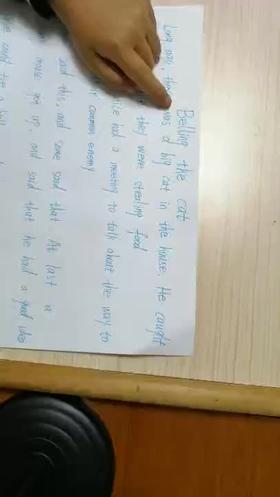 Belling the cat
Long was, was a big cat in the house. He caught
they were stealing food
ice had a meeting to talk about the way to
r common enemy
said this, and some said that At last a
mouse got up and said that he had a good idea